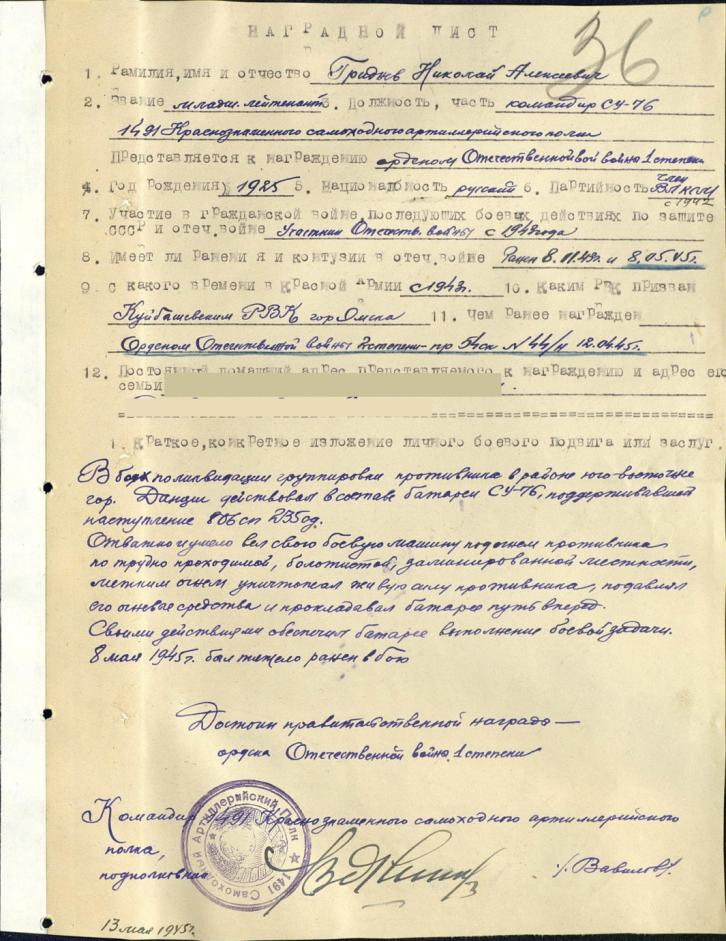 НАГРАДНОЙ ЛИСТ
36
1. Фамилия, имя и отчество Гриднев Николай Алексеевич
2. Звание младш. лейтенант 3. Должность, часть командир СУ-76
1491 Краснознаменного самоходного артиллерийского полка
Представляется к награждению орденом Отечественной войны 1 степени
4. Год рождения 1925 5. Национальность русский 6. Партийность член ВЛКСМ
с 1942
7. Участие в гражданской войне, последующих боевых действиях по защите
СССР и отеч. войне Участник Отечеств. войны с 1943 года
8. Имеет ли ранения и контузии в отеч. войне Ранен 8.11.43г. и 8.05.45г.
9. с какого времени в красной армии с 1943г. 10. Каким РВК призван
Куйбышевским РВК гор Омска 11. Чем ранее награжден
Орденом Отечественной войны 2 степени - пр N 44/н 12.04.45г.
12. Постоянный домашний адрес представляемого к награждению и адрес его
семьи
1. Краткое, конкретное изложение личного боевого подвига или заслуг.
В боях по ликвидации группировки противника в районе юго-восточнее
гор. Данциг действовал в составе батареи СУ-76, поддерживавшей
наступление 806 сп 235 сд.
Отважно и умело вел свою боевую машину под огнем противника
по трудно проходимой, болотистой, заминированной местности,
метким огнем уничтожал живую силу противника, подавлял
его огневые средства и прокладывал батарее путь вперед.
Своими действиями обеспечил батарее выполнение боевой задачи.
8 мая 1945г. был тяжело ранен в бою
Достоин правительственной награды —
ордена Отечественной войны 1 степени
Командир 1491 Краснознаменного самоходного артиллерийского
полка,
подполковник /Вавилов/.
1491 Самоходный Артиллерийский Полк
13 мая 1945г.